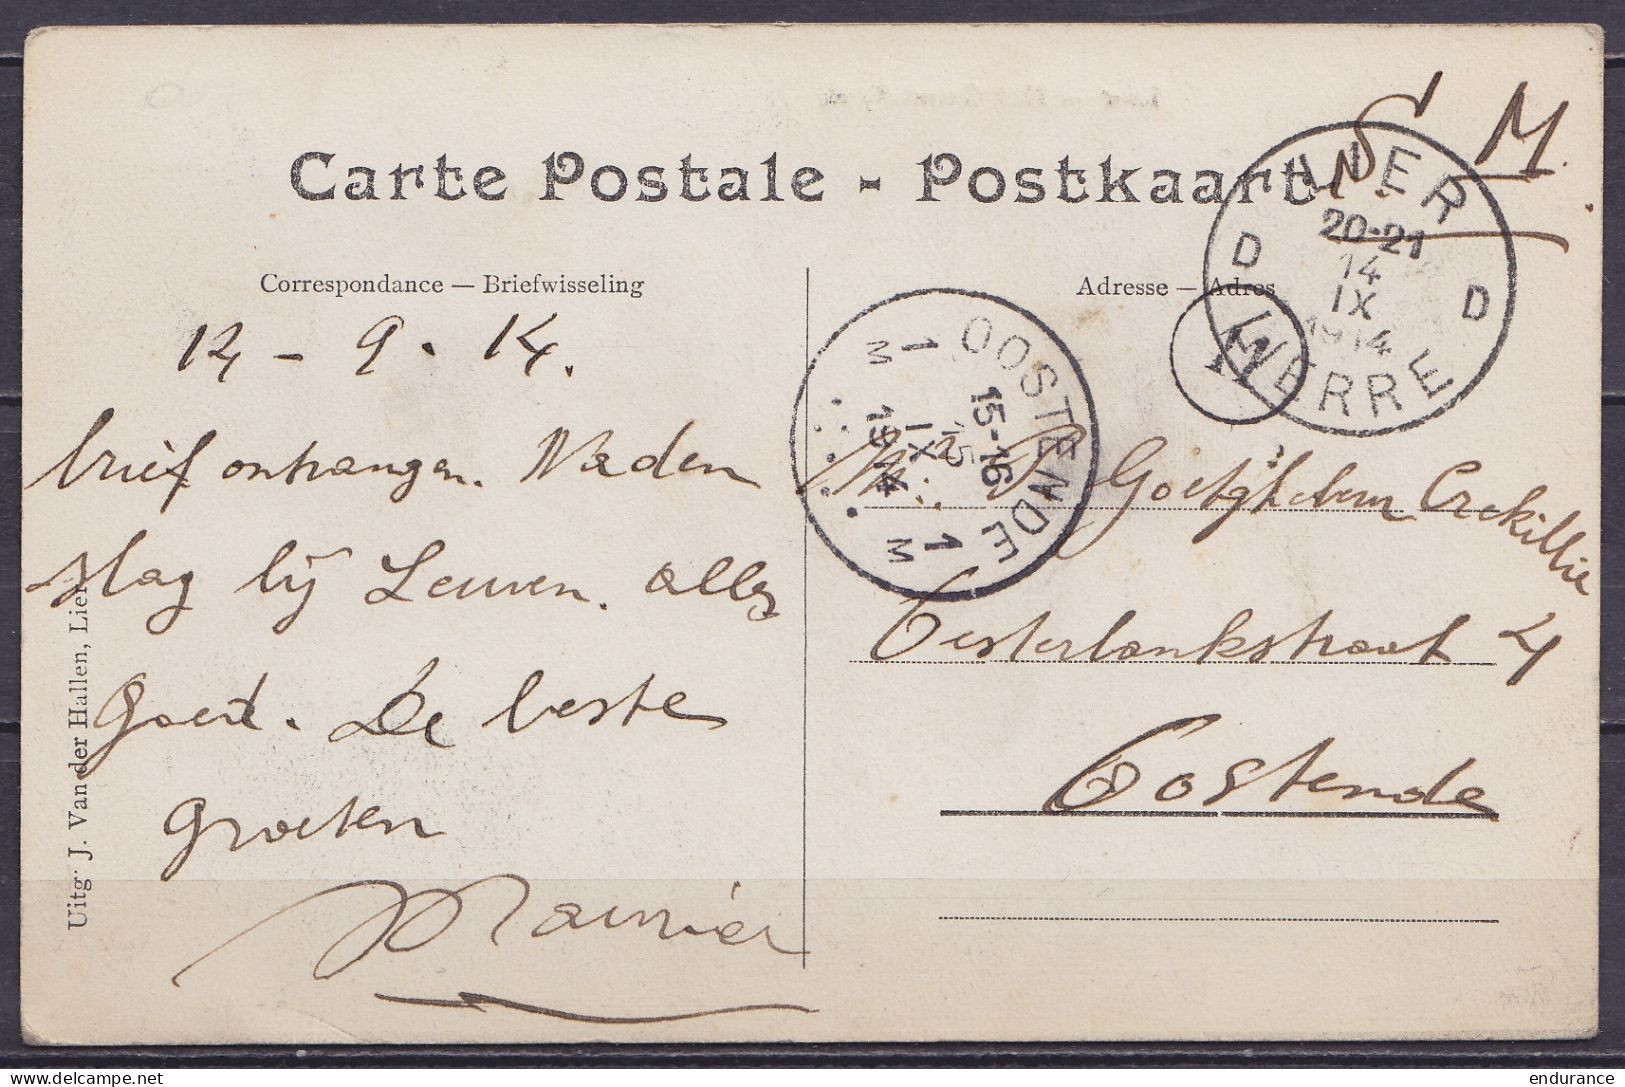 S. M.
Carte Postale - Postkaart
LIER
20-21
14
IX
1914
D D
LIERRE
Correspondance — Briefwisseling
Adresse — Adres
14 - 9 - 14.
OOSTENDE
15-16
15
IX
1914
1 M 1 M
brief ontvangen. Na den
slag bij Leuven. alles
goed. De beste
Groeten
Maurice
Goetghebeur
Oesterbankstraat 4
Oostende
Uitg. J. Van der Hallen, Lier
endurance